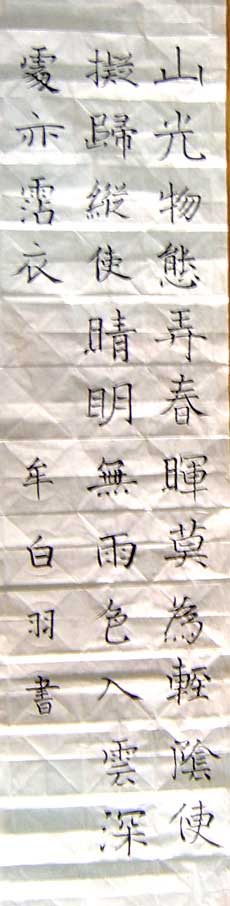 山光物態弄春暉莫為輕陰便
擬歸縱使晴明無雨色入雲深
處亦霑衣
牟白羽書